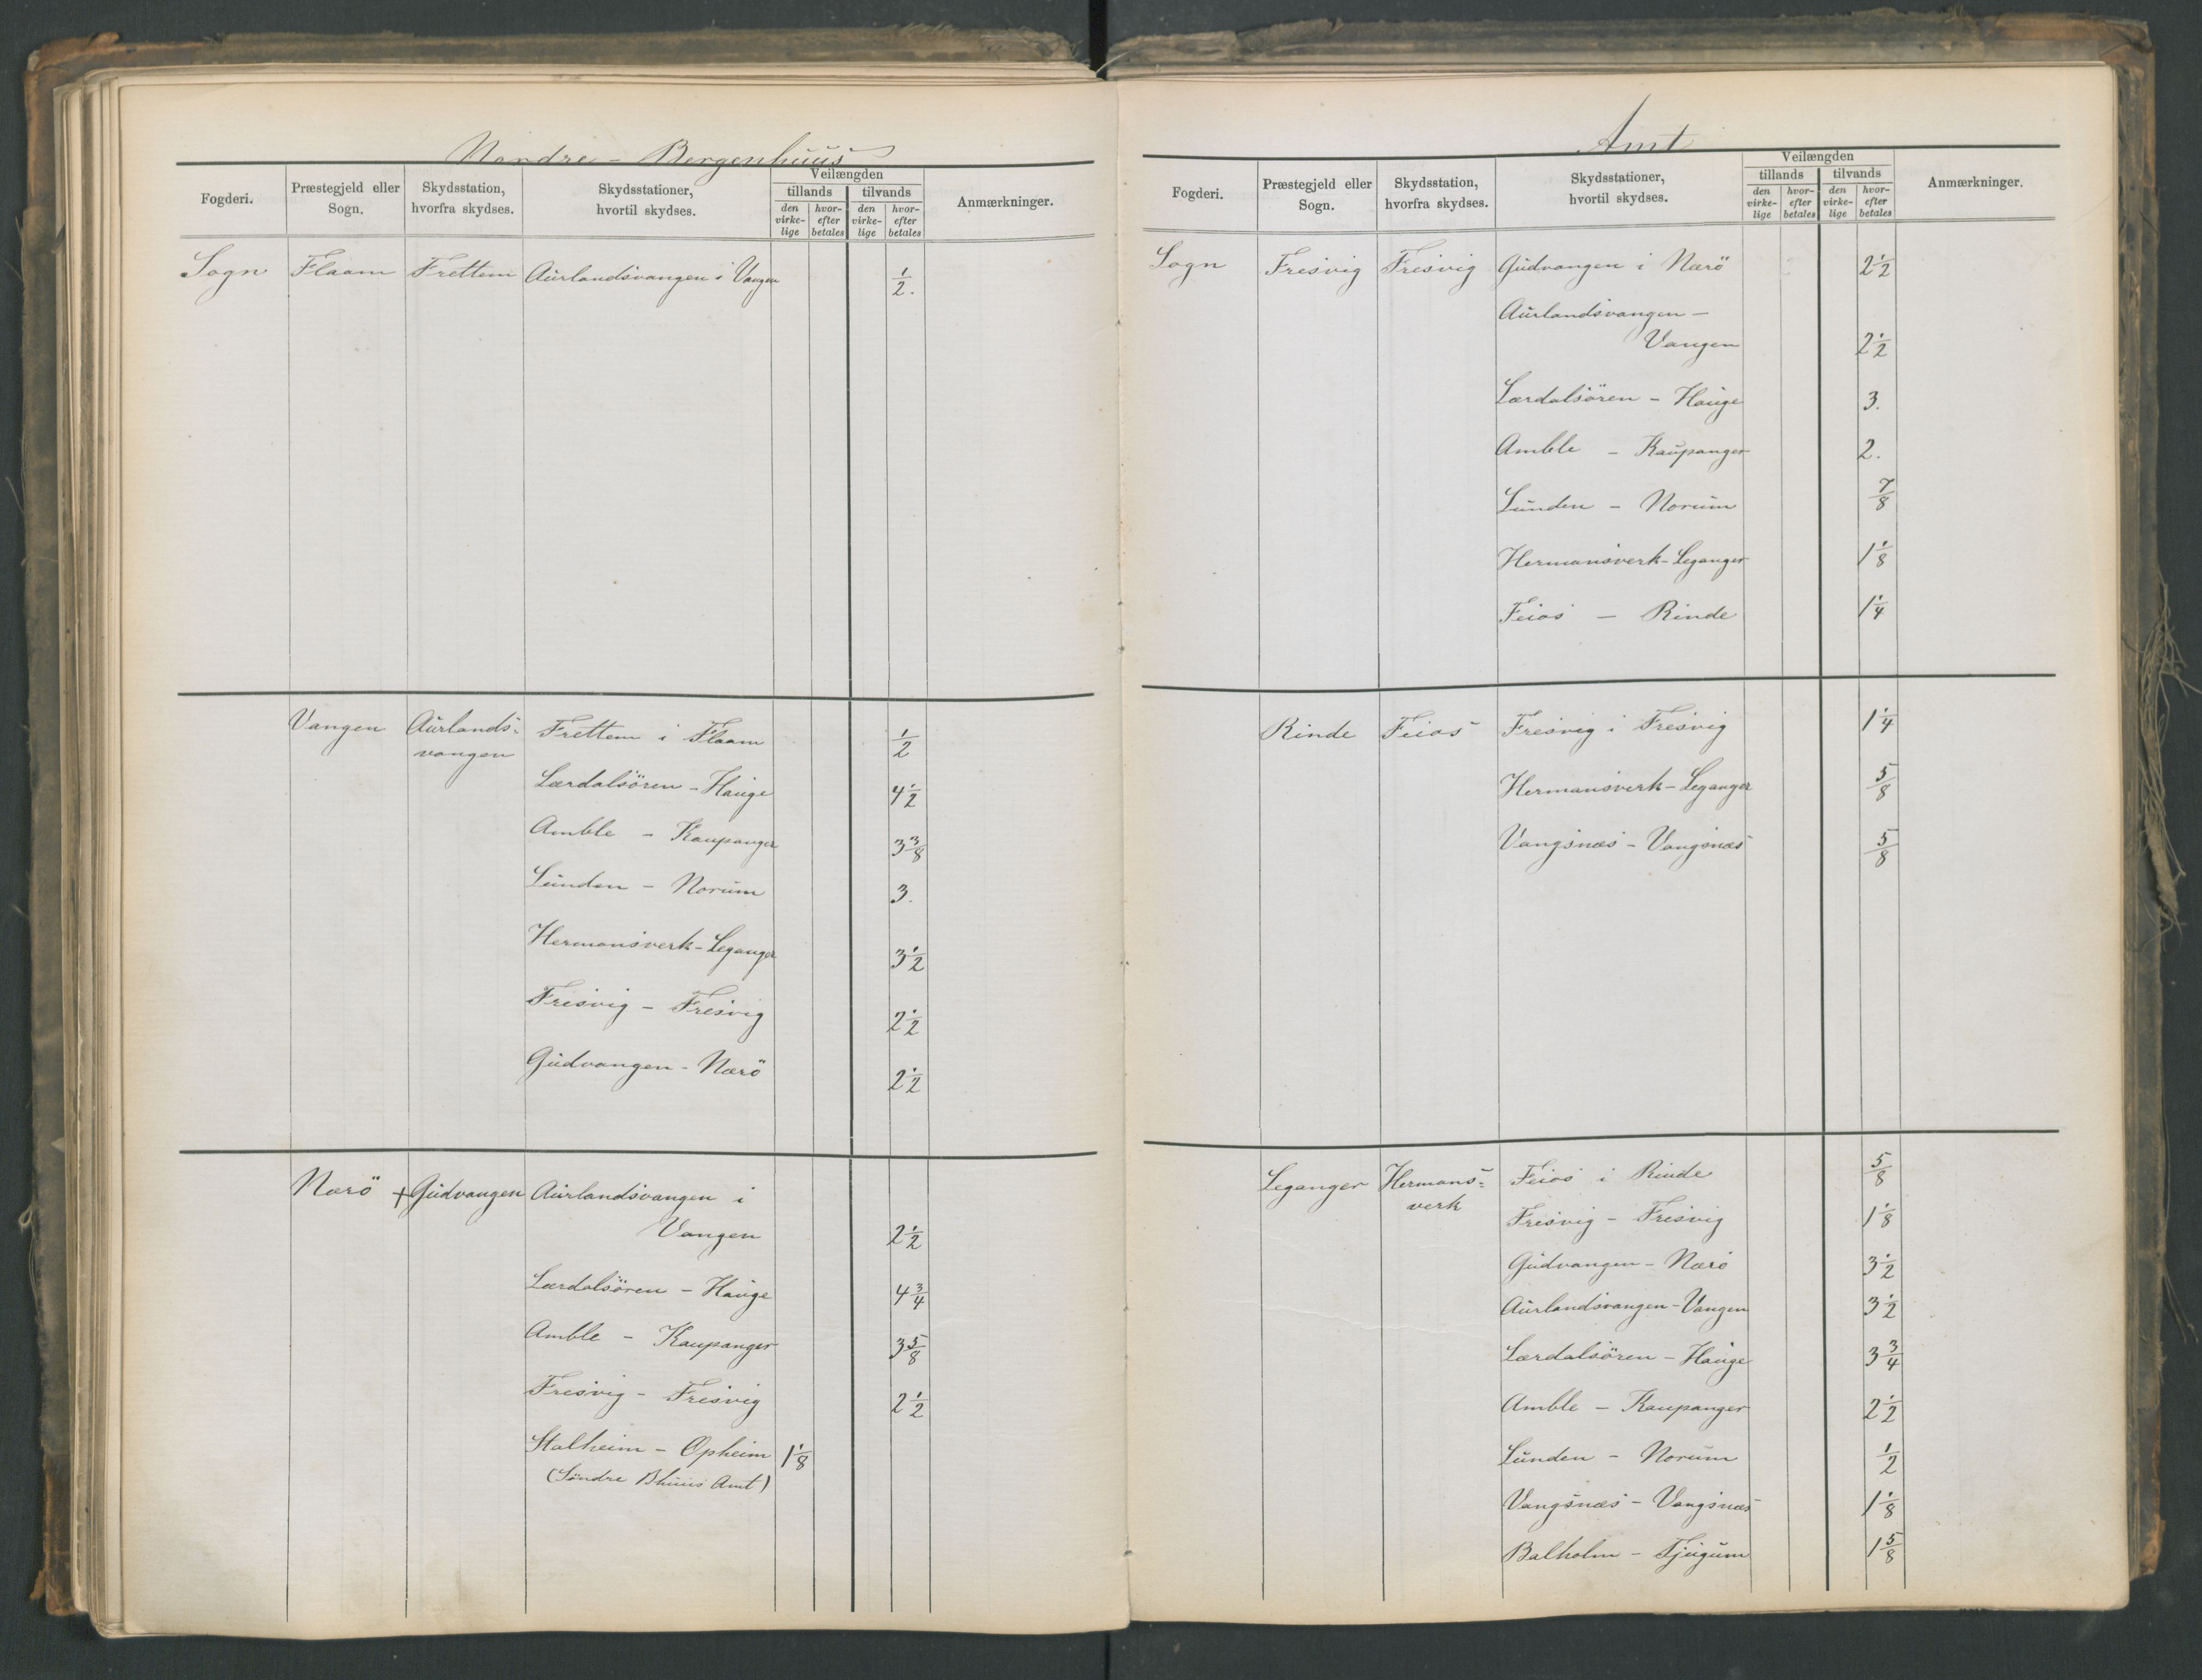 Nordre - Bergenhuus
Fogderi. Præstegjeld eller Sogn. Skydsstation, hvorfra skydses. Skydsstationer, hvortil skydses. Veilængden Anmærkninger.
tillands tilvands
den virke-lige hvor-efter betales den virke-lige hvor-efter betales
Sogn Flaam Frettem Aurlandsvangen i Vangen 1/2.
Vangen Aurlands-vangen Frettem i Flaam 1/2
Lærdalsören - Hauge 4 1/2
Amble - Kaupanger 3 3/8
Lunden - Norum 3.
Hermansverk - Leganger 3 1/2
Fresvig - Fresvig 2 1/2
Gudvangen - Nærö 2 1/2
Nærö + Gudvangen Aurlandsvangen i
Vangen 2 1/2
Lærdalsören - Hauge 4 3/4
Amble - Kaupanger 3 5/8
Fresvig - Fresvig 2 1/2
Stalheim - Opheim 1 1/8
(Söndre Bhuus Amt)
Amt
Fogderi. Præstegjeld eller Sogn. Skydsstation, hvorfra skydses. Skydsstationer, hvortil skydses. Veilængden Anmærkninger.
tillands tilvands
den virke-lige hvor-efter betales den virke-lige hvor-efter betales
Sogn Fresvig Fresvig Gudvangen i Nærö 2 1/2
Aurlandsvangen -
Vangen 2 1/2
Lærdalsören - Hauge 3.
Amble - Kaupanger 2.
Lunden - Norum 7/8
Hermansverk - Leganger 1 1/8
Feios - Rinde 1 1/4
Rinde Feios Fresvig i Fresvig 1 1/4
Hermansverk - Leganger 5/8
Vangsnæs - Vangsnæs 5/8
Leganger Hermans-verk Feios i Rinde 5/8
Fresvig - Fresvig 1 1/8
Gudvangen - Nærö 3 1/2
Aurlandsvangen - Vangen 3 1/2
Lærdalsören - Hauge 3 3/4
Amble - Kaupanger 2 1/2
Lunden - Norum 1/2
Vangsnæs - Vangsnæs 1 1/8
Balholm - Tjugum 1 5/8